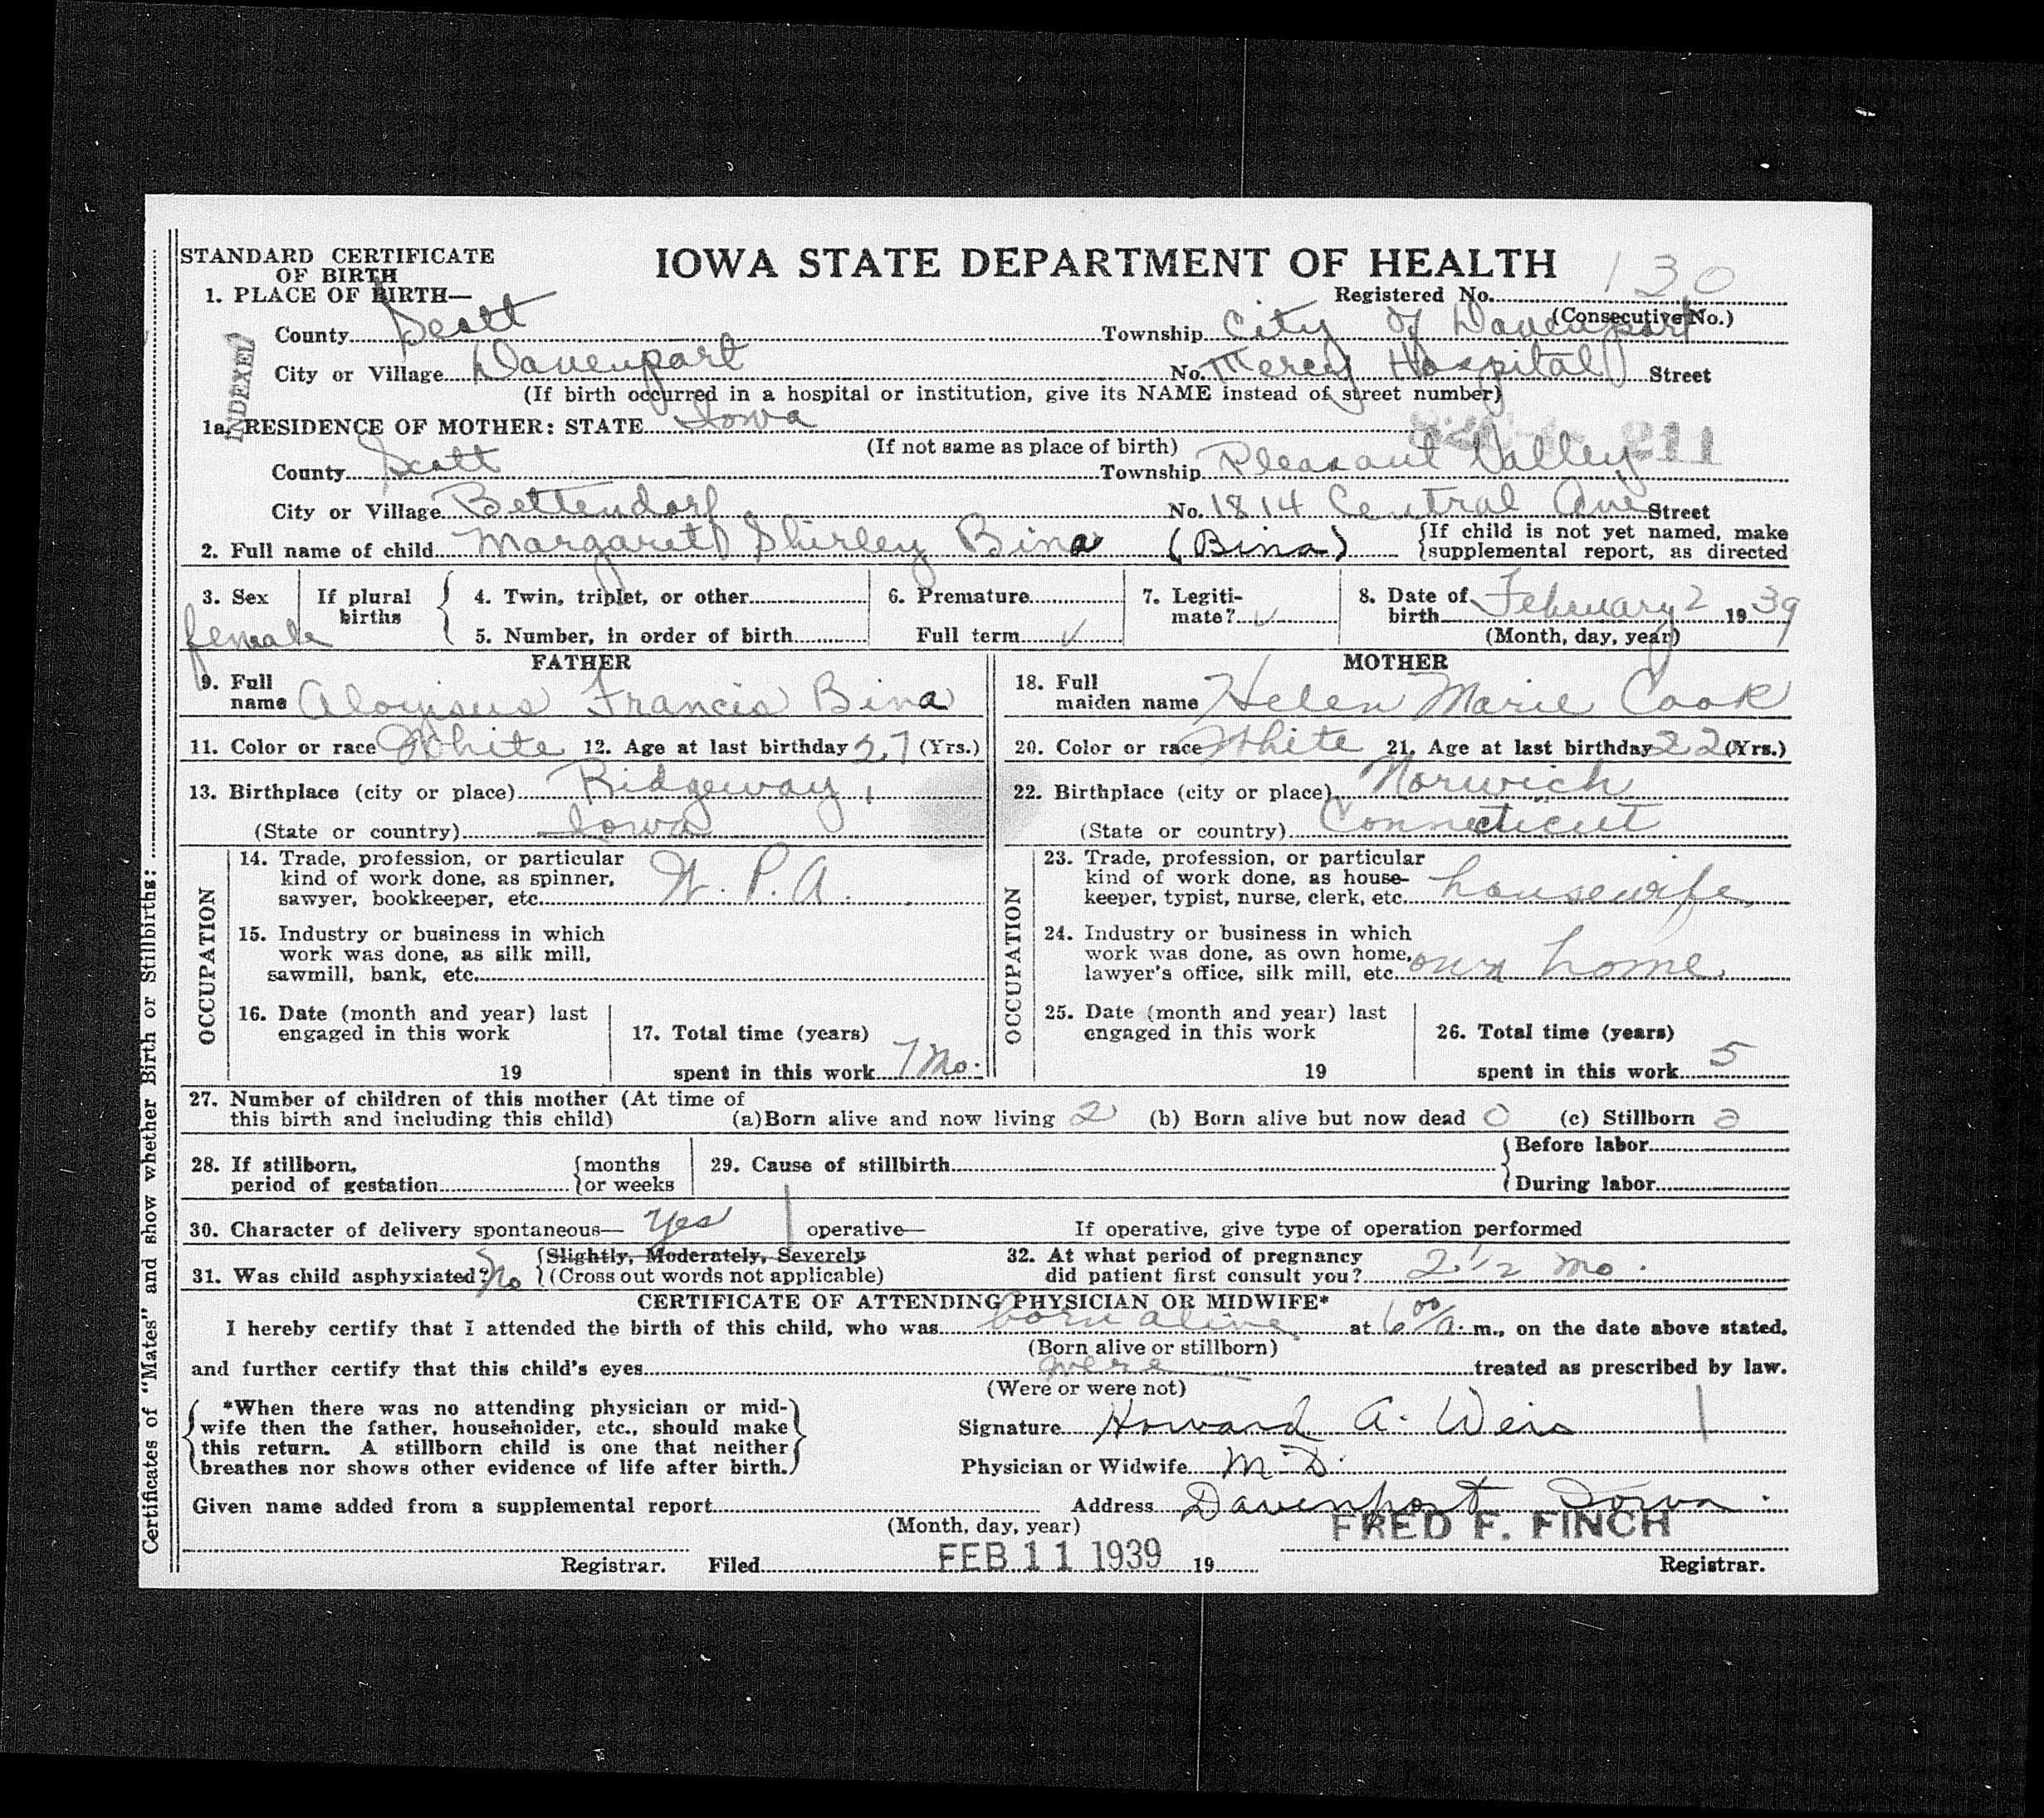 STANDARD CERTIFICATE OF BIRTH
IOWA STATE DEPARTMENT OF HEALTH
1. PLACE OF BIRTH—
Registered No. 130
(Consecutive No.)
County Scott Township City of Davenport
City or Village Davenport No. Mercy Hospital Street
(If birth occurred in a hospital or institution, give its NAME instead of street number)
INDEXED
1a. RESIDENCE OF MOTHER: STATE Iowa
(If not same as place of birth)
211
County Scott Township Pleasant Valley
City or Village Bettendorf No. 1814 Central Ave Street
2. Full name of child Margaret Shirley Bina (Bina) {If child is not yet named, make supplemental report, as directed
3. Sex female
If plural births
4. Twin, triplet, or other
5. Number, in order of birth
6. Premature
Full term ✓
7. Legitimate? ✓
8. Date of birth February 2 1939
(Month, day, year)
FATHER
9. Full name Aloysius Francis Bina
11. Color or race White 12. Age at last birthday 27 (Yrs.)
13. Birthplace (city or place) Ridgeway,
(State or country) Iowa
OCCUPATION
14. Trade, profession, or particular
kind of work done, as spinner,
sawyer, bookkeeper, etc. W. P. A.
15. Industry or business in which
work was done, as silk mill,
sawmill, bank, etc.
16. Date (month and year) last
engaged in this work
19
17. Total time (years)
spent in this work 7 Mo.
MOTHER
18. Full maiden name Helen Marie Cook
20. Color or race White 21. Age at last birthday 22 (Yrs.)
22. Birthplace (city or place) Norwich
(State or country) Connecticut
OCCUPATION
23. Trade, profession, or particular
kind of work done, as house-
keeper, typist, nurse, clerk, etc. housewife
24. Industry or business in which
work was done, as own home,
lawyer's office, silk mill, etc. own home
25. Date (month and year) last
engaged in this work
19
26. Total time (years)
spent in this work 5
27. Number of children of this mother (At time of
this birth and including this child) (a) Born alive and now living 2 (b) Born alive but now dead 0 (c) Stillborn 0
28. If stillborn,
period of gestation {months or weeks
29. Cause of stillbirth
{Before labor
During labor
30. Character of delivery spontaneous— yes operative— If operative, give type of operation performed
31. Was child asphyxiated? No {Slightly, Moderately, Severely
(Cross out words not applicable)
32. At what period of pregnancy
did patient first consult you? 2 1/2 mo.
CERTIFICATE OF ATTENDING PHYSICIAN OR MIDWIFE*
I hereby certify that I attended the birth of this child, who was born alive at 6 00/a. m., on the date above stated,
(Born alive or stillborn)
and further certify that this child's eyes were treated as prescribed by law.
(Were or were not)
*When there was no attending physician or mid-
wife then the father, householder, etc., should make
this return. A stillborn child is one that neither
breathes nor shows other evidence of life after birth.
Signature Howard A. Weis
Physician or Widwife M.D.
Given name added from a supplemental report
(Month, day, year)
Address Davenport Iowa.
FRED F. FINCH
Registrar. Filed FEB 11 1939 19 Registrar.
Certificates of "Mates" and show whether Birth or Stillbirths: